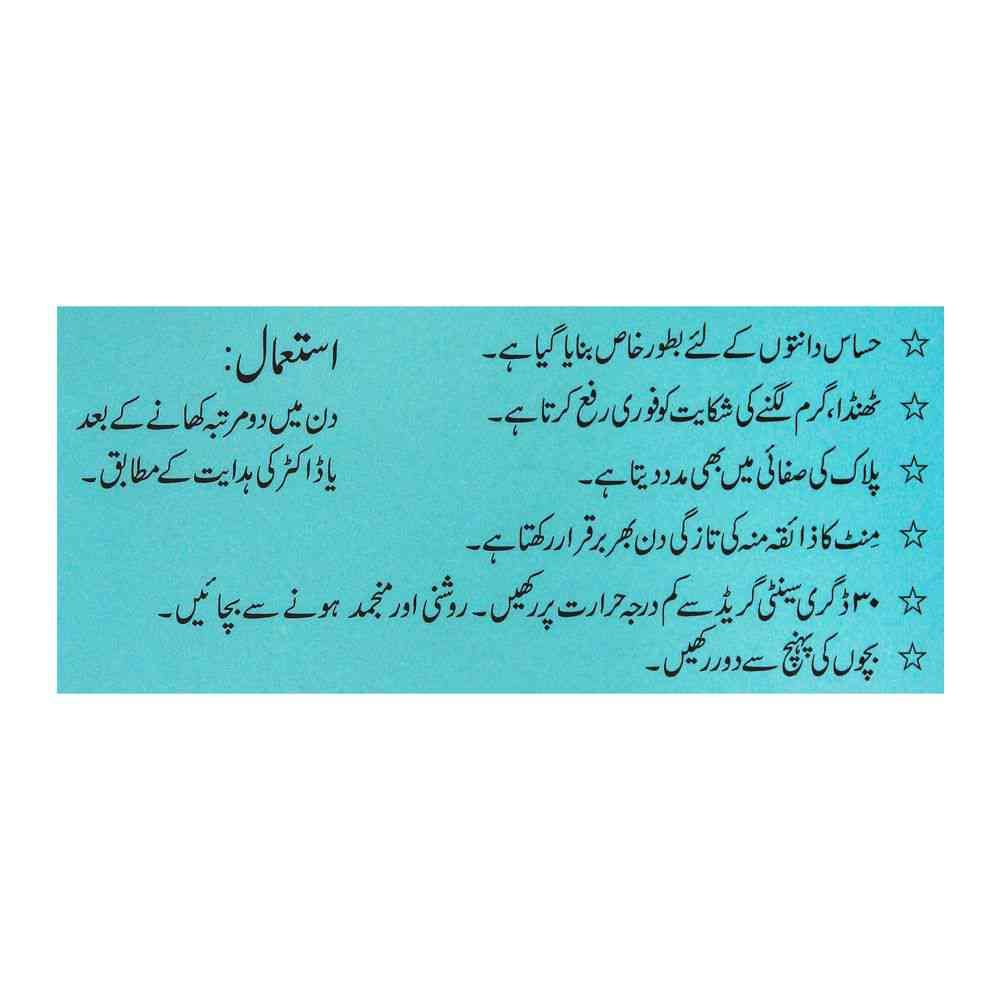 ☆ حساس دانتوں کے لئے بطور خاص بنایا گیا ہے۔
☆ ٹھنڈا، گرم لگنے کی شکایت کو فوری رفع کرتا ہے۔
☆ پلاک کی صفائی میں بھی مدد دیتا ہے۔
☆ مِنٹ کا ذائقہ منہ کی تازگی دن بھر برقرار رکھتا ہے۔
☆ ۳۰ ڈگری سینٹی گریڈ سے کم درجہ حرارت پر رکھیں۔ روشنی اور منجمد ہونے سے بچائیں۔
☆ بچوں کی پہنچ سے دور رکھیں۔
استعمال:
دن میں دو مرتبہ کھانے کے بعد
یا ڈاکٹر کی ہدایت کے مطابق۔